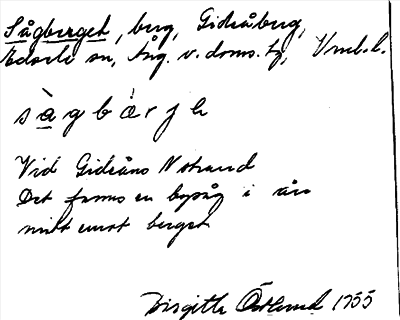 Sågberget, berg, Gideåberg,
sn, Ång. v. doms. tg, Vmb. l.
s å g b ä r j e
Vid Gideåns N strand
Det finns en bysåg i ån
mitt emot berget
Birgitta Östlund 1955